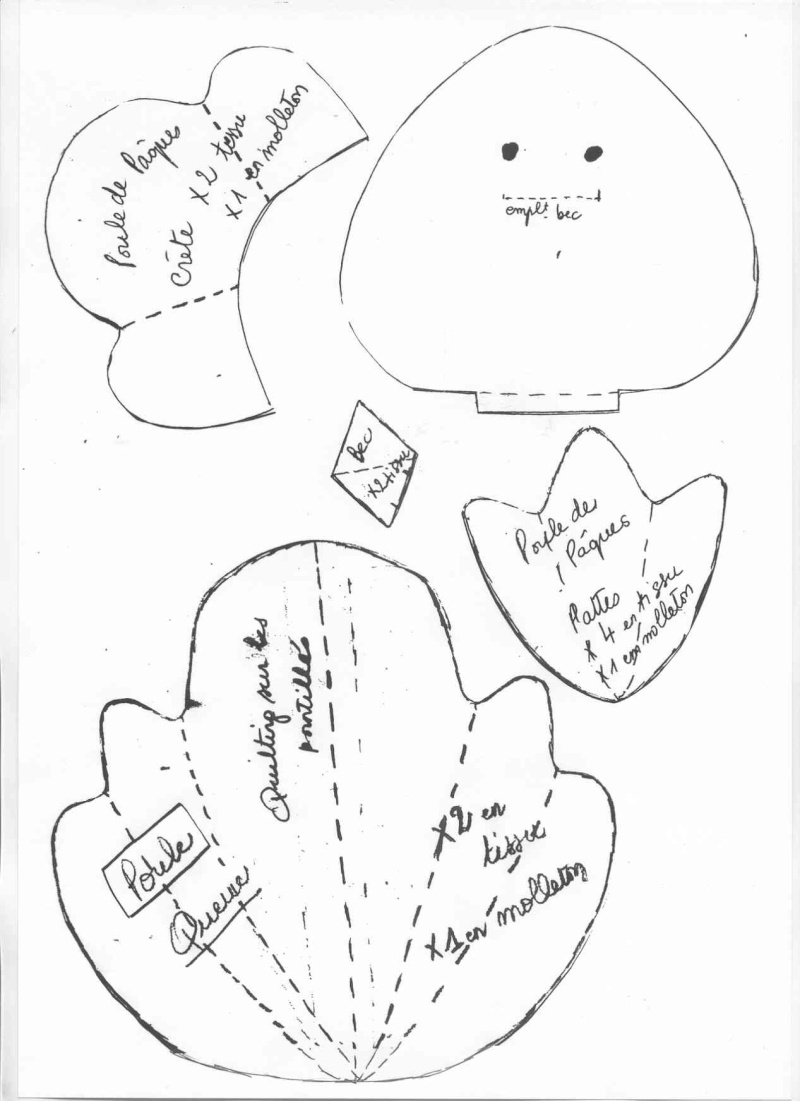 Poule de Pâques
Crête x2 tissu
x1 en molleton
emplt bec
Bec
x2 tissu
Poule de
Pâques
Pattes
x 4 en tissu
x 1 en molleton
Quilting sur les
pointillés
Poule
Queue
x2 en
tissu
x1 en molleton